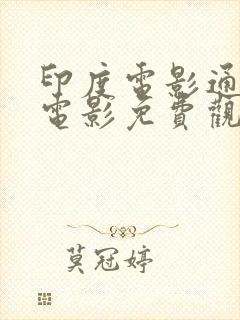 印度電影通
電影免費觀
莫冠婷